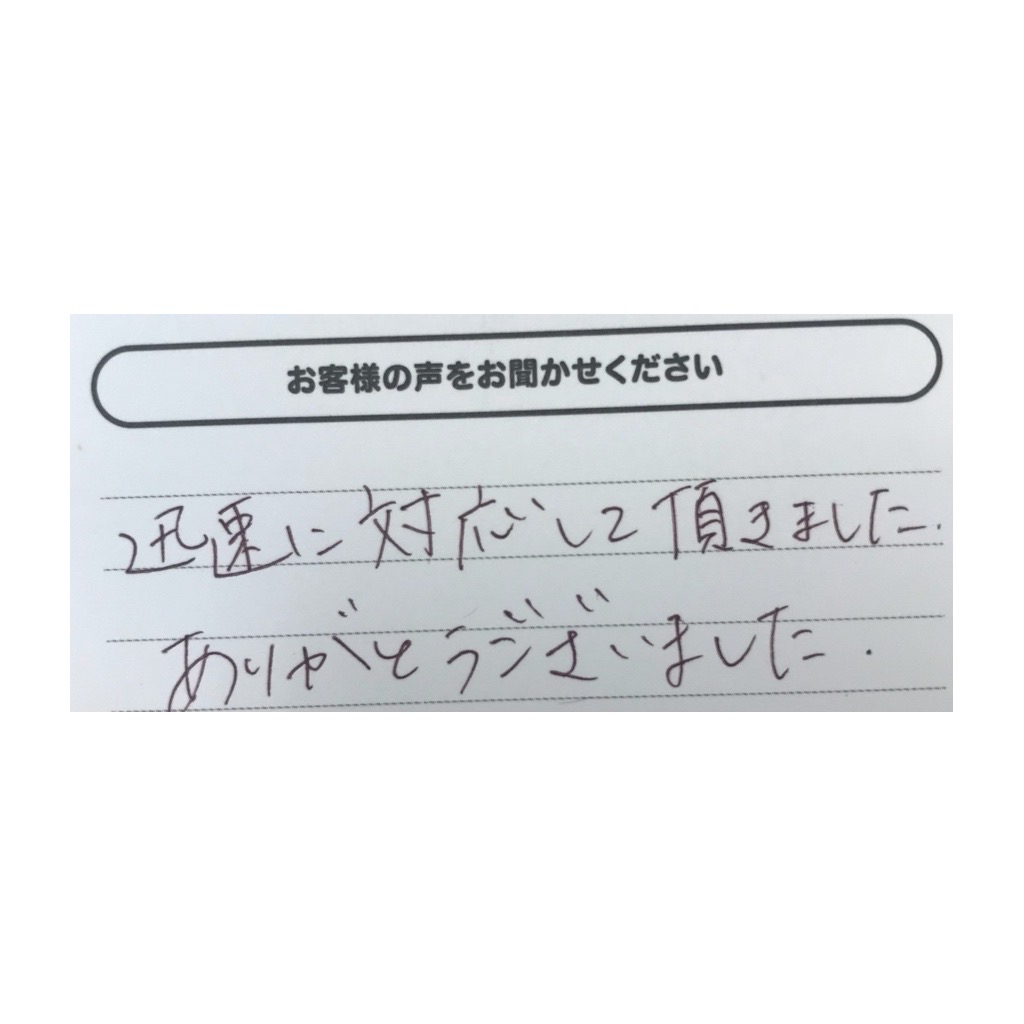 お客様の声をお聞かせください
迅速に対応して頂きました.
ありがとうございました.